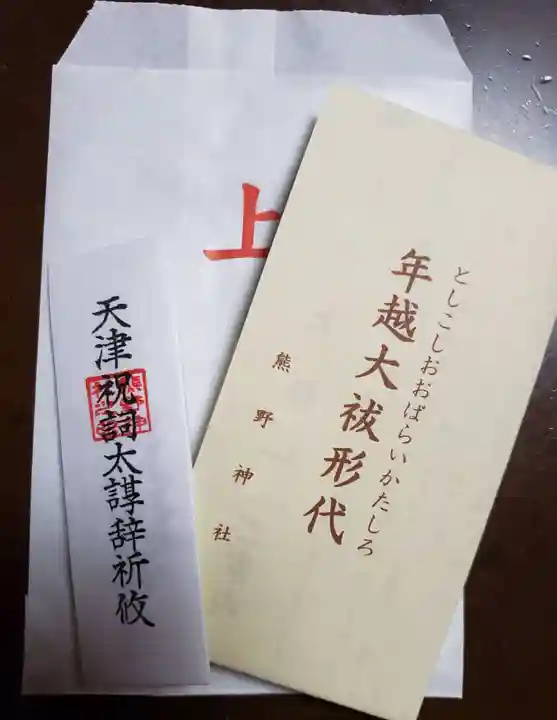 上
としこしおおばらいかたしろ
年越大祓形代
熊野神社
天津祝詞太諄辞祈攸